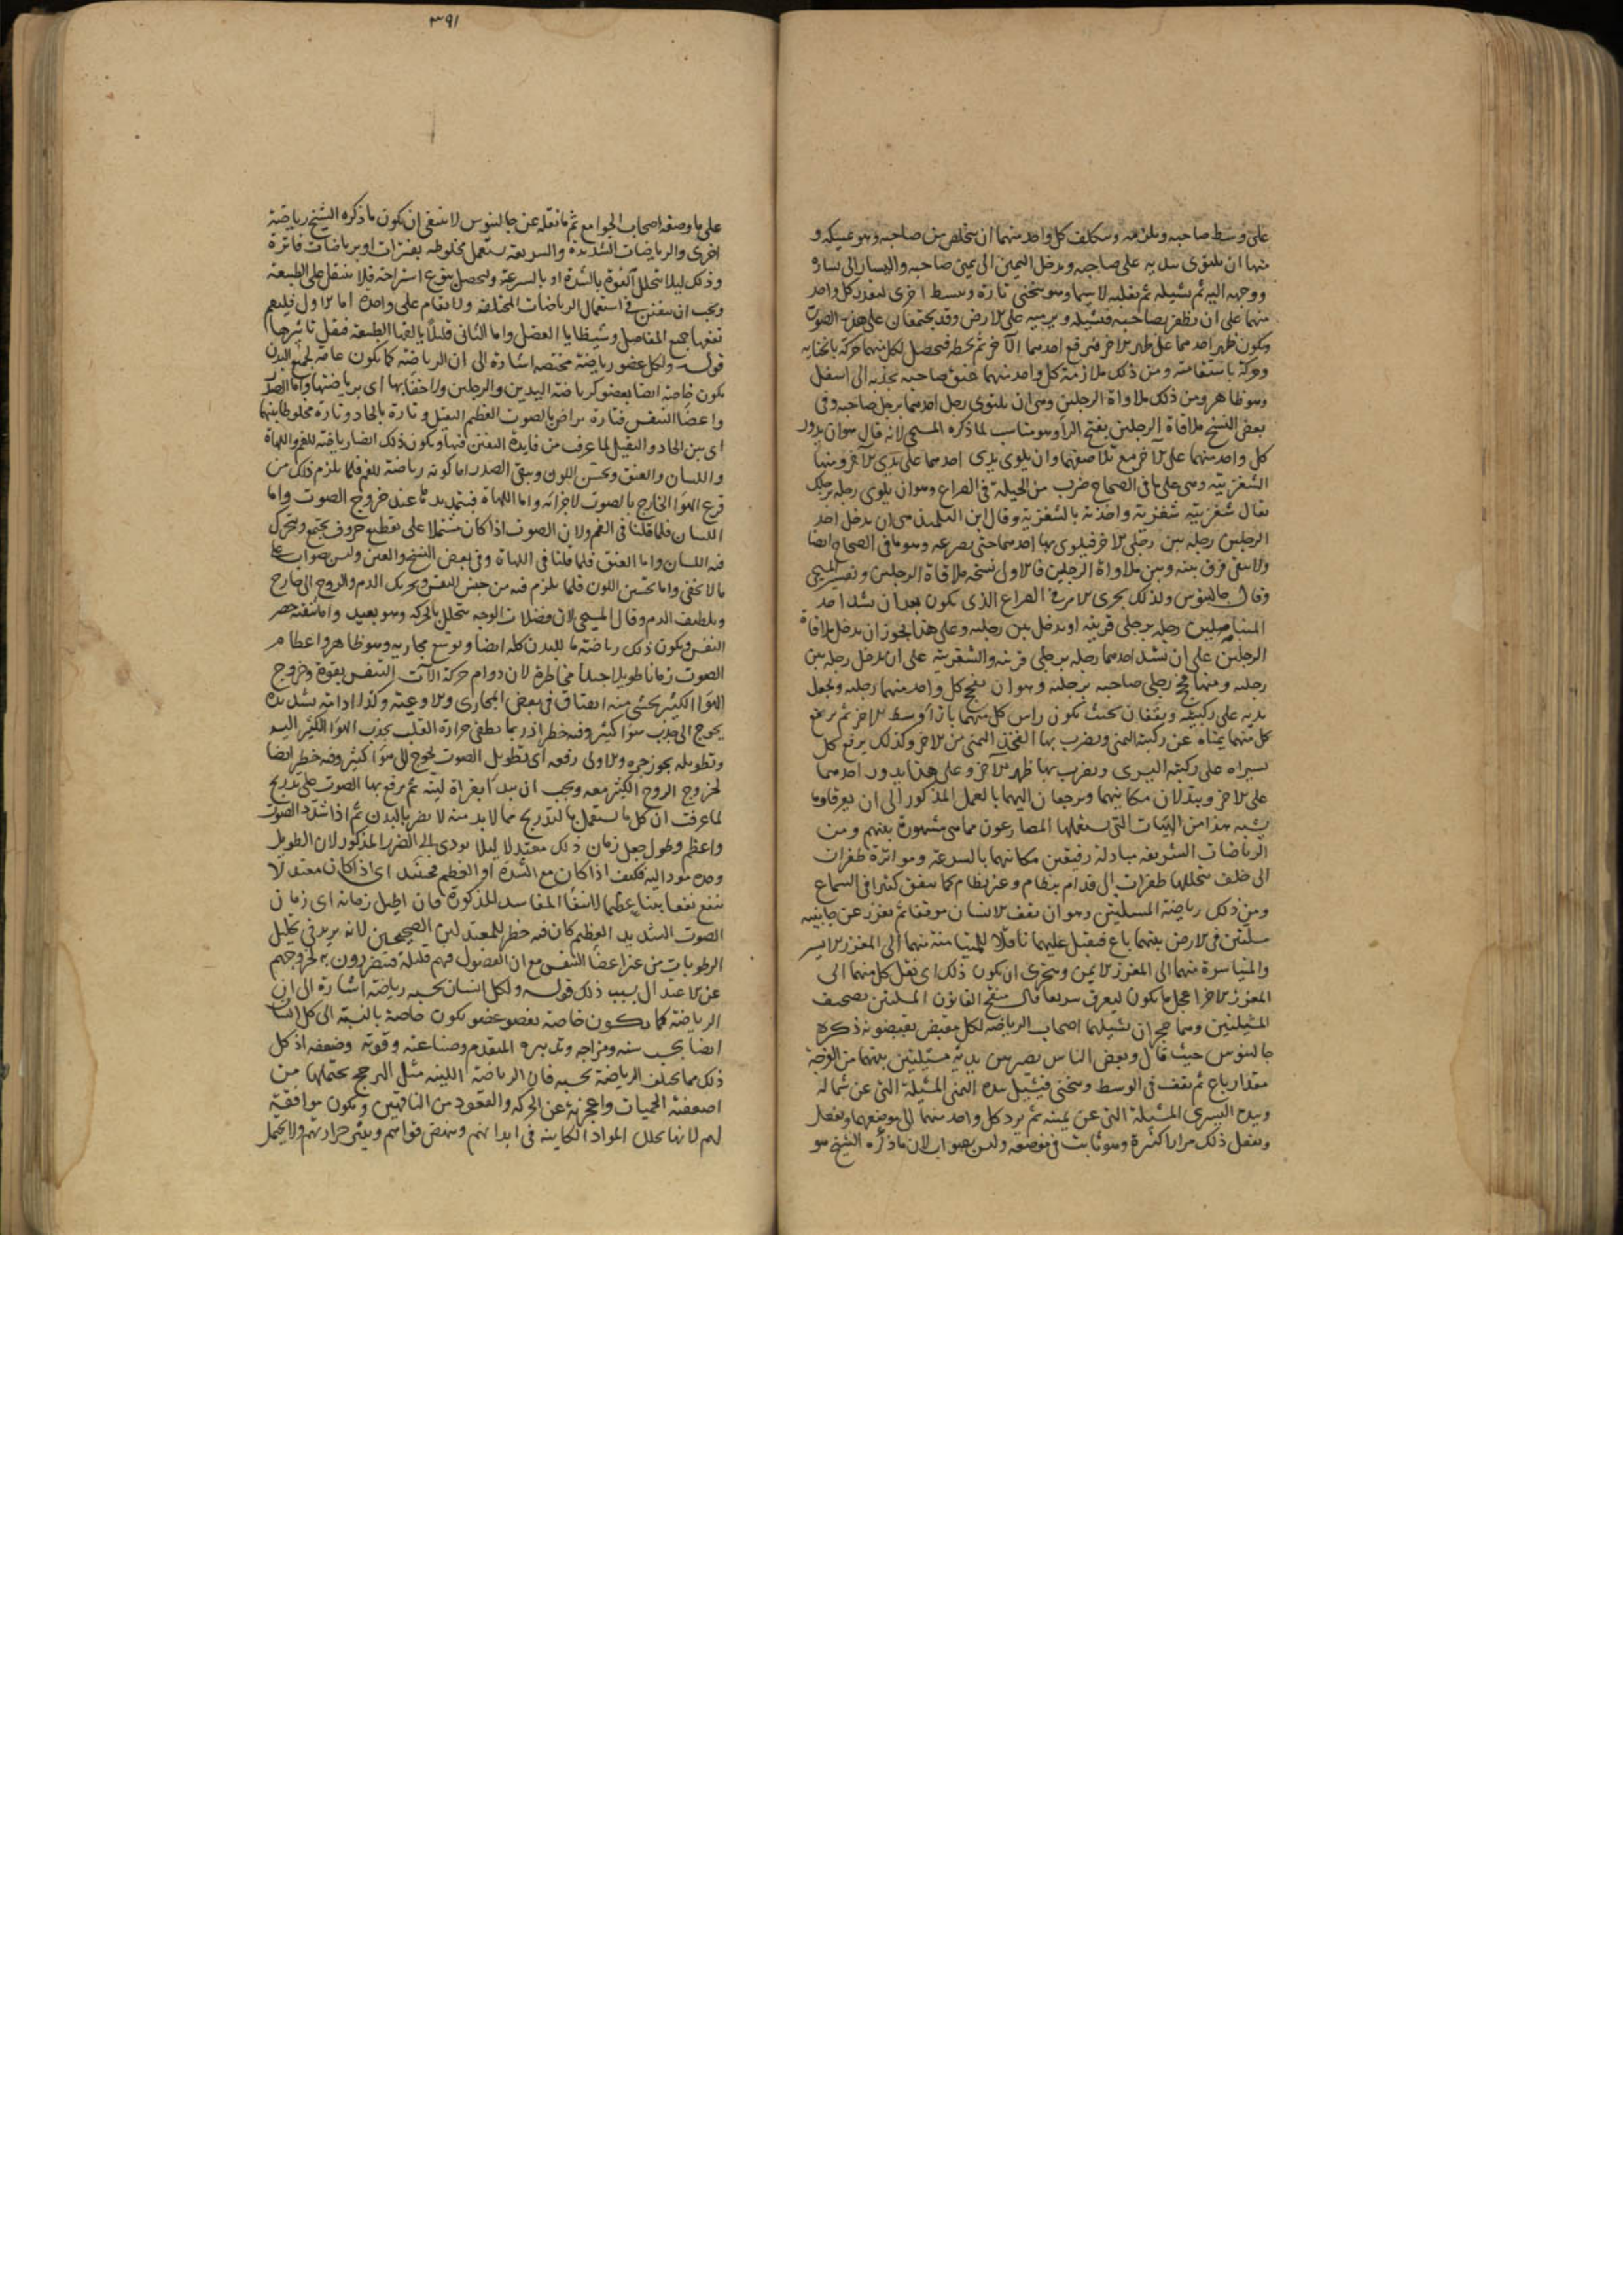 على وسط صاحبه ويلزمه ويتكلف كل واحد منهما ان يتخلص من صاحبه وهو يمسكه و
منها ان يلتوى بيديه على صاحبه ويدخل اليمين الى يمين صاحبه واليسار الى يساره
ووجهه اليه ثم يشيله ثم يقلبه لا سيما وهو ينحنى تارة وينبسط اخرى ليغرر كل واحد
منهما على ان يظفر بصاحبه فيشيله ويرميه على الارض وقد يجتمعان على هذه الصورة
ويكون ظهر احدهما على ظهر الاخر فيرفع احدهما الآخر ثم يحطه فيحصل لكل منهما حركة بانحنايه
وحركة باستقامته ومن ذلك ملازمة كل واحد منهما عنق صاحبه يجذبه الى اسفل
وهو ظاهر ومن ذلك ملاواة الرجلين وهى ان يلتوى رجل احدهما برجل صاحبه وفى
بعض النسخ ملاقاة الرجلين بفتح الرا وهو مناسب لما ذكره المسيحى لانه قال هو ان يدور
كل واحد منهما على الآخر مع تلاصقهما وان يلوى يدى احدهما على يدى الآخر ومنها
الشغزبية وهى على ما فى الصحاح ضرب من الحيلة فى الصراع وهو ان يلوى رجله برجلك
يقال شغزبته شغزبة واخذته بالشغزبية وقال ابن التلميذ هى ان يدخل احد
الرجلين رجله بين رجلى الاخر فيلوى بها احدهما حتى يصرعه وهو ما فى الصحاح ايضا
ولا يبقى فرق بينه وبين ملاواة الرجلين فالاول نسخه ملاقاة الرجلين وتفسير المسيحى
وقال جالينوس ولذلك يجرى الامر فى الصراع الذى يكون بعد ان يشد احد
رجله برجلى قرينه او يدخل بين رجليه وعلى هذا يجوز ان يدخل ملاقاة
الرجلين على ان يشد احدهما رجله برجلى قرينه والشغزبية على ان يدخل رجله بين
رجليه ومنها فحج رجلى صاحبه برجليه وهو ان يفحج كل واحد منهما رجليه ويجعل
يديه على ركبتيه ويقفان بحيث يكون راس كل منهما بازآ وسط الاخر ثم يرفع
كل منهما يمناه عن ركبته اليمنى ويضرب بها الفخذ اليمنى من الاخر وكذلك يرفع كل
يسراه على ركبته اليسرى ويضرب بها ظهر الآخر وعلى هذا يدور احدهما
على الاخر ويبدلان مكانيهما ويرجعان اليهما بالعمل المذكور الى ان يعرقا وما
يشبه هذا من الهيئات التى يستعملها المصارعون مما هى مشهورة بينهم ومن
الرياضات السريعه مبادلة رفيقين مكانيهما بالسرعة ومواترة طفرات
الى خلف يتخللها طفرات الى قدام بنظام وغير نظام كما يتفق كثيرا فى السماع
ومن ذلك رياضة المسلتين وهو ان يقف الانسان موقفا ثم يغرز عن جانبيه
مسلتين فى الارض بينهما باع فيقبل عليهما ناقلا للمتيامنة منهما الى المغرز الايسر
والمتياسرة منهما الى المغرز الايمن ويتحرى ان يكون ذلك اى نقل كل منهما الى
المغرز الاخر اعجل ما يكون ليعرق سريعا قال منقح القانون المسلتين تصحيف
المثيلتين وهما حجران يشيلهما اصحاب الرياضة لكل مقبض يقبضونه ذكره
جالينوس حيث قال وبعض الناس يصير بين يديه مثيلتين بينهما من الفرجة
مقدار باع ثم يقف فى الوسط وينحنى فيشيل بيده اليمنى المثيلة التى عن شماله
وبيده اليسرى المثيلة التى عن يمينه ثم يرد كل واحد منهما الى موضعهما ويفعل
ويفعل ذلك مرارا كثيرة وهو ثابت فى موضعه وليس بصواب لان ما ذكره الشيخ هو
٣٩١
على ما وصفه اصحاب الجوامع ثم ما نقله عن جالينوس لا ينبغى ان يكون ما ذكره الشيخ رياضة
اخرى والرياضات الشديدة والسريعة يستعمل مخلوطه بفترات او برياضات فاترة
وذلك ليلا يتحلل القوة بالشدة او بالسرعة وليحصل نوع استراحة فلا يثقل على الطبيعة
ويجب ان يتفنن فى استعمال الرياضات المختلفه ولا تقام على واحدة اما الاول فليعم
نفعها جميع المفاصل وشظايا العضل واما الثانى فليلا يالفها الطبيعة فيقل تاثيرها
قوله ولكل عضو رياضة مختصه اشارة الى ان الرياضة كما يكون عامة لجميع البدن
يكون خاصة ايضا بعضو كرياضة اليدين والرجلين ولا خفا بها اى برياضتها واما الصدر
واعضا التنفس فتارة يراض بالصوت العظيم الثقيل وتارة بالحاد وتارة مخلوطا بينهما
اى بين الحاد والثقيل لما عرف من فايدة التفنن فيها ويكون ذلك ايضا رياضة للفم واللهاة
واللسان والعنق ويحسن اللون وينقى الصدر اما كونه رياضة للفم فلما يلزم ذلك من
قرع الهوآ الخارج بالصوت لاجزائه واما اللهاة فيتمدد تمددا عند خروج الصوت واما
اللسان فلما قلنا فى الفم ولان الصوت اذا كان مشتملا على تقطيع حروف يجتمع ويتحرك
فيه اللسان واما العنق فلما قلنا فى اللهاة وفى بعض النسخ والعين وليس بصواب على
ما لا يخفى واما تحسين اللون فلما يلزم فيه من حبس النفس وتحريك الدم والروح الى خارج
وتلطيف الدم وقال المسيحى لان فضلات الوجه يتحلل بالحركة وهو بعيد واما تنقية حصر
النفس ويكون ذلك رياضة ما للبدن كله ايضا وتوسع مجاريه وهو ظاهر واعظام
الصوت زمانا طويلا جدا مخاطرة لان دوام حركة آلات التنفس بقوة وخروج
الهوآ الكثير يخشى منه انفتاق فى بعض المجارى والاوعية وكذا ادامة شديده
يحوج الى جذب هوآ كثير وفيه خطر اذ ربما يطفى حرارة القلب بجذب الهوآ الكثير اليه
وتطويله يجوز جره والاولى رفعه اى تطويل الصوت يحوج الى هوآ كثير وفيه خطر ايضا
لخروج الروح الكثير معه ويجب ان يبدا بقراة لينة ثم يرفع بها الصوت على تدريج
لما عرفت ان كل ما يستعمل بالتدريج مما لا بد منه لا يضر بالبدن ثم اذا شدد الصوت
واعظم وطول جعل زمان ذلك معتدلا ليلا يودى الى الضرر المذكور لان الطويل
وحده مود اليه فكيف اذا كان مع الشدة او العظم فحينئذ اى اذا كان معتدلا
ينفع نفعا بينا عظيما لانتفآ المفاسد المذكورة فان اطيل زمانه اى زمان
الصوت الشديد العظيم كان فيه خطر للمعتدلين الصحيحين لانه يزيد فى تحليل
الرطوبات من غير اعضا التنفس مع ان الفضول فيهم قليلة فيتضررون به لخروجهم
عن الاعتدال بسبب ذلك قوله ولكل انسان بحسبه رياضة اشارة الى ان
الرياضة كما يكون خاصة بعضو عضو يكون خاصة بالنسبة الى كل انسان
ايضا بحسب سنه ومزاجه وتدبيره المتقدم وصناعته وقوته وضعفه اذ كل
ذلك مما يختلف الرياضة بحسبه فان الرياضة اللينه مثل الترجح يحتملها من
اضعفته الحميات واعجزته عن الحركة والقعود من الناقهين ويكون موافقة
لهم لانها تحلل المواد الكاينه فى ابدانهم وينهض قواهم ويثير حرارتهم ولا يحمل